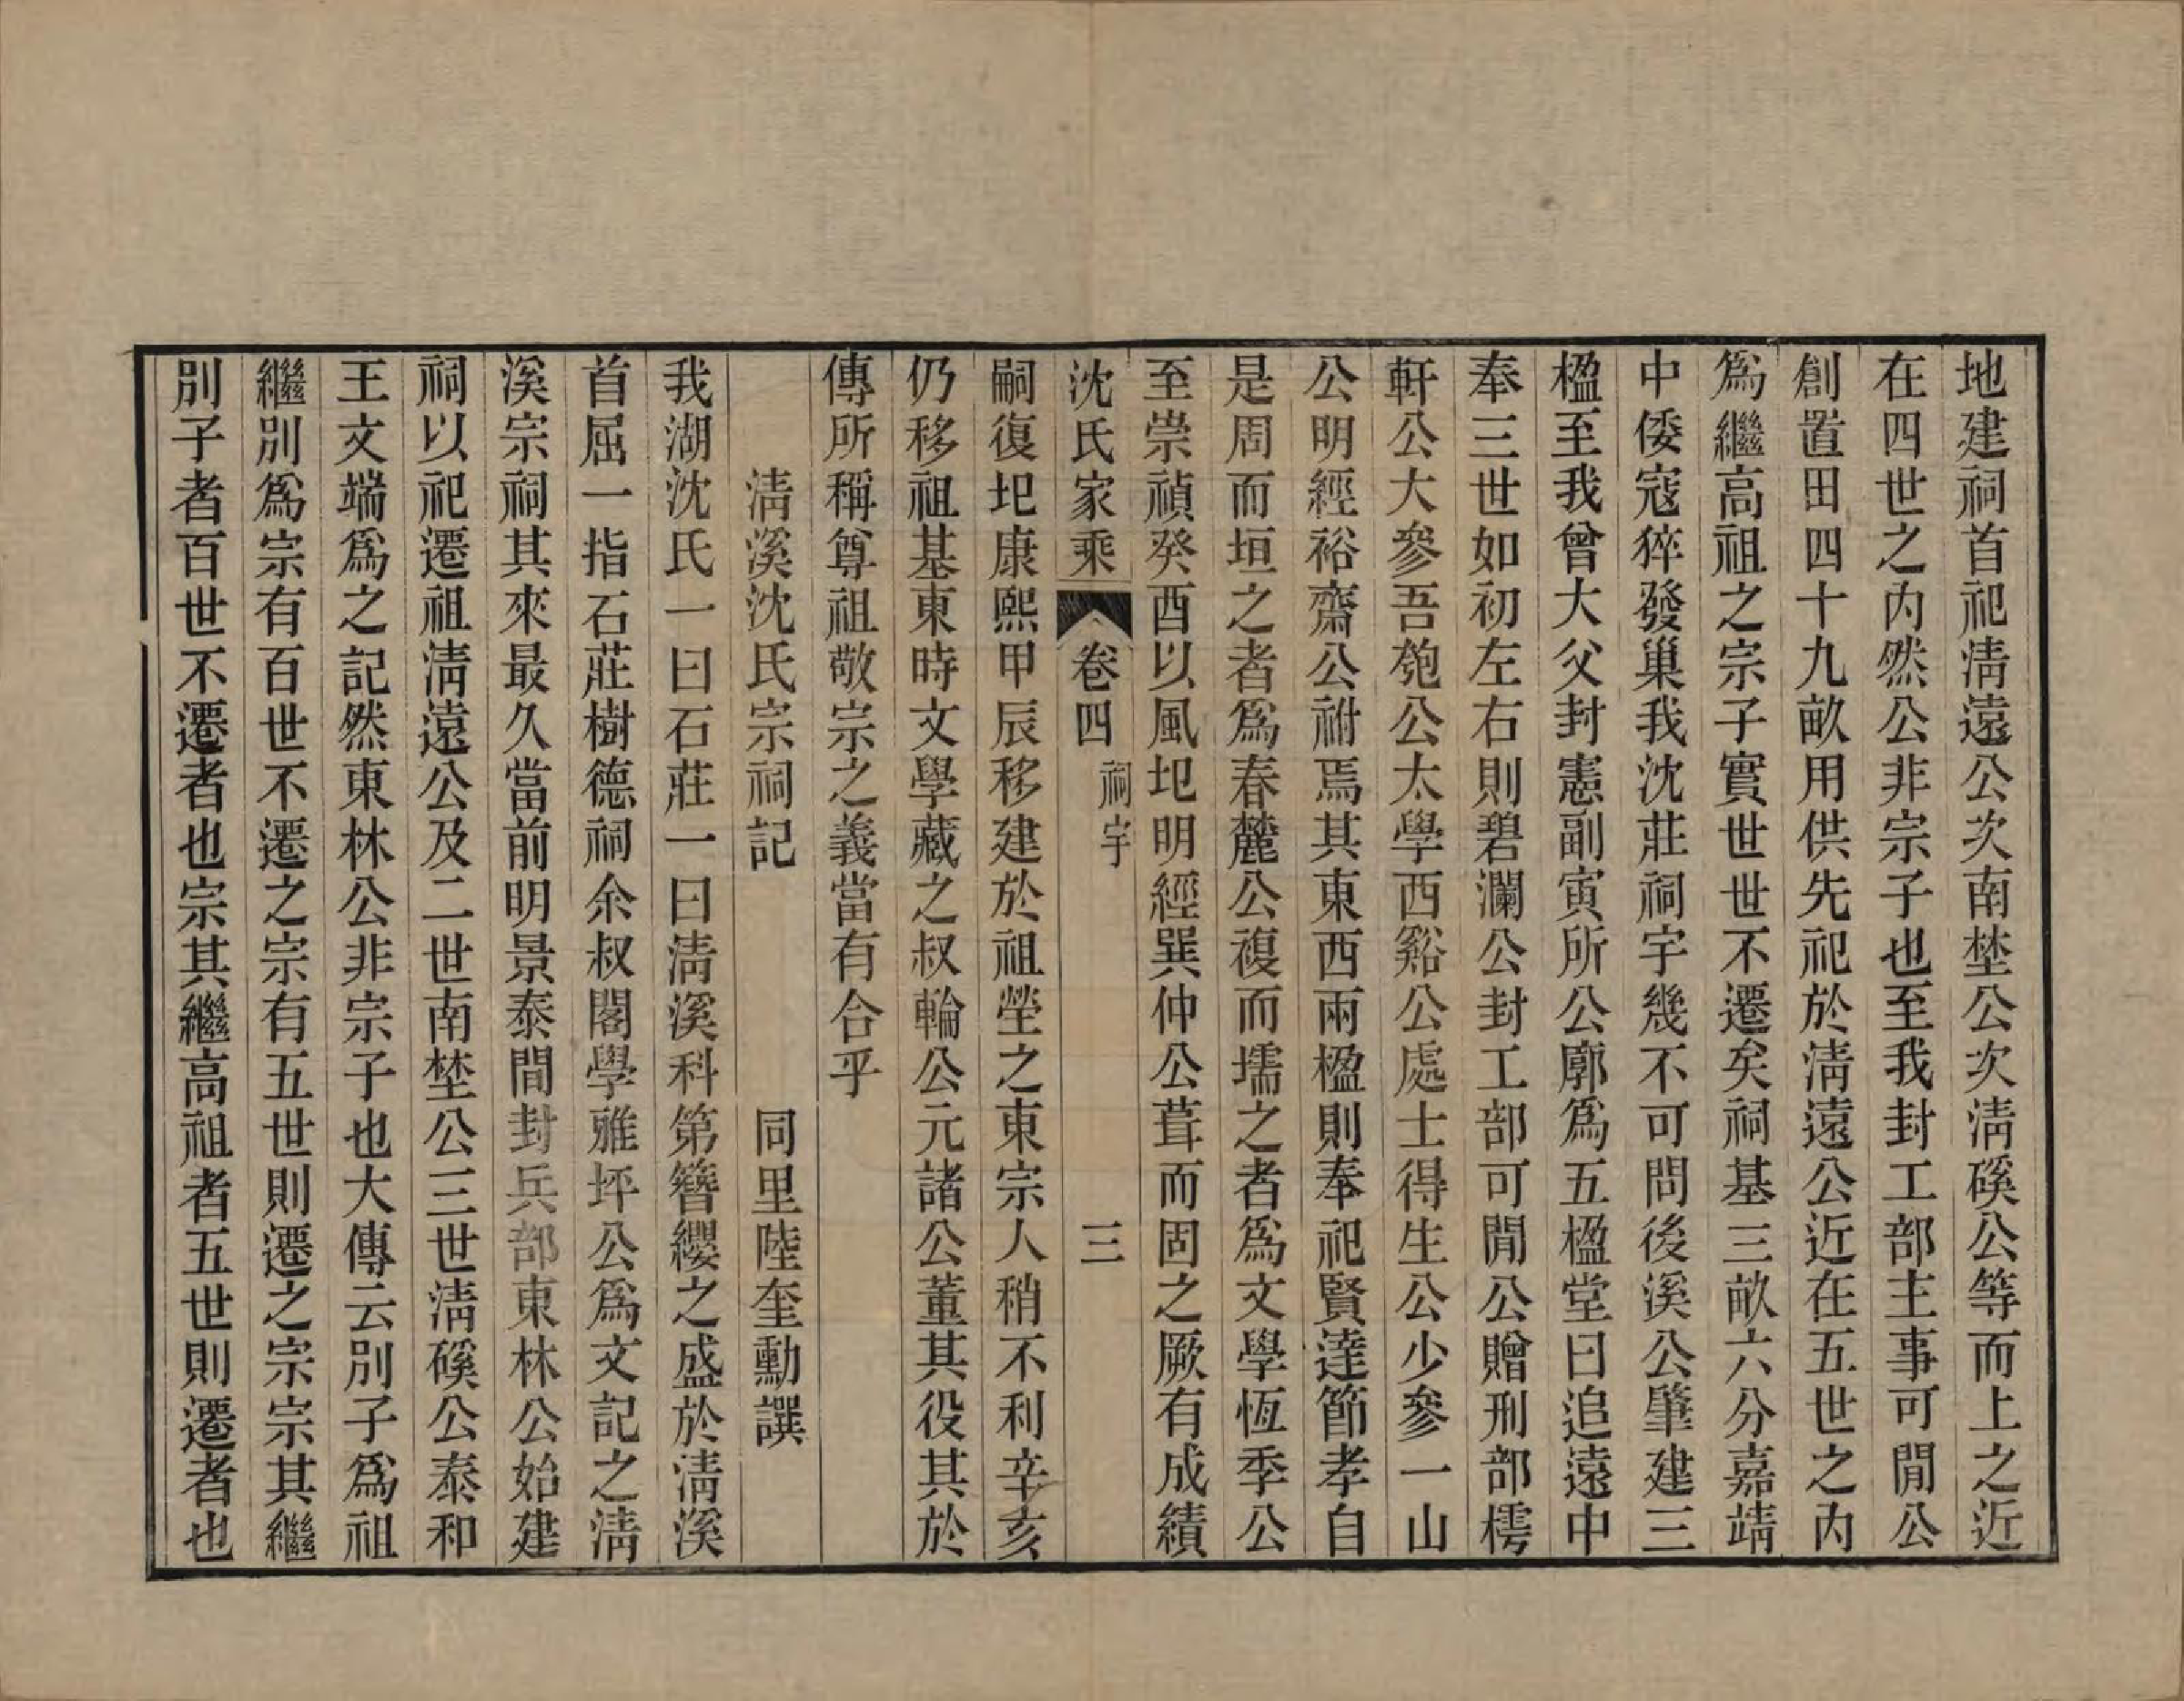 地建祠首祀淸遠公次南埜公次淸磎公等而上之近
在四世之內然公非宗子也至我封工部主事可閒公
創置田四十九畝用供先祀於淸遠公近在五世之內
爲繼高祖之宗子實世世不遷矣祠基三畝六分嘉靖
中倭寇猝發巢我沈莊祠宇幾不可問後溪公肇建三
楹至我曾大父封憲副寅所公廓爲五楹堂曰追遠中
奉三世如初左右則碧瀾公封工部可閒公贈刑部樗
軒公大參吾匏公太學西谿公處士得生公少參一山
公明經裕齋公祔焉其東西兩楹則奉祀賢達節孝自
是周而垣之者爲春麓公複而壖之者爲文學恆季公
至崇禎癸酉以風圯明經巽仲公葺而固之厥有成績
沈氏家乘 卷四 祠宇 三
嗣復圯康熙甲辰移建於祖塋之東宗人稍不利辛亥
仍移祖基東時文學藏之叔輪公元諸公董其役其於
傳所稱尊祖敬宗之義當有合乎
淸溪沈氏宗祠記 同里陸奎勳譔
我湖沈氏一曰石莊一曰淸溪科第簪纓之盛於淸溪
首屈一指石莊樹德祠余叔閣學雅坪公爲文記之淸
溪宗祠其來最久當前明景泰間封兵部東林公始建
祠以祀遷祖淸遠公及二世南埜公三世淸磎公泰和
王文端爲之記然東林公非宗子也大傳云別子爲祖
繼別爲宗有百世不遷之宗有五世則遷之宗宗其繼
別子者百世不遷者也宗其繼高祖者五世則遷者也